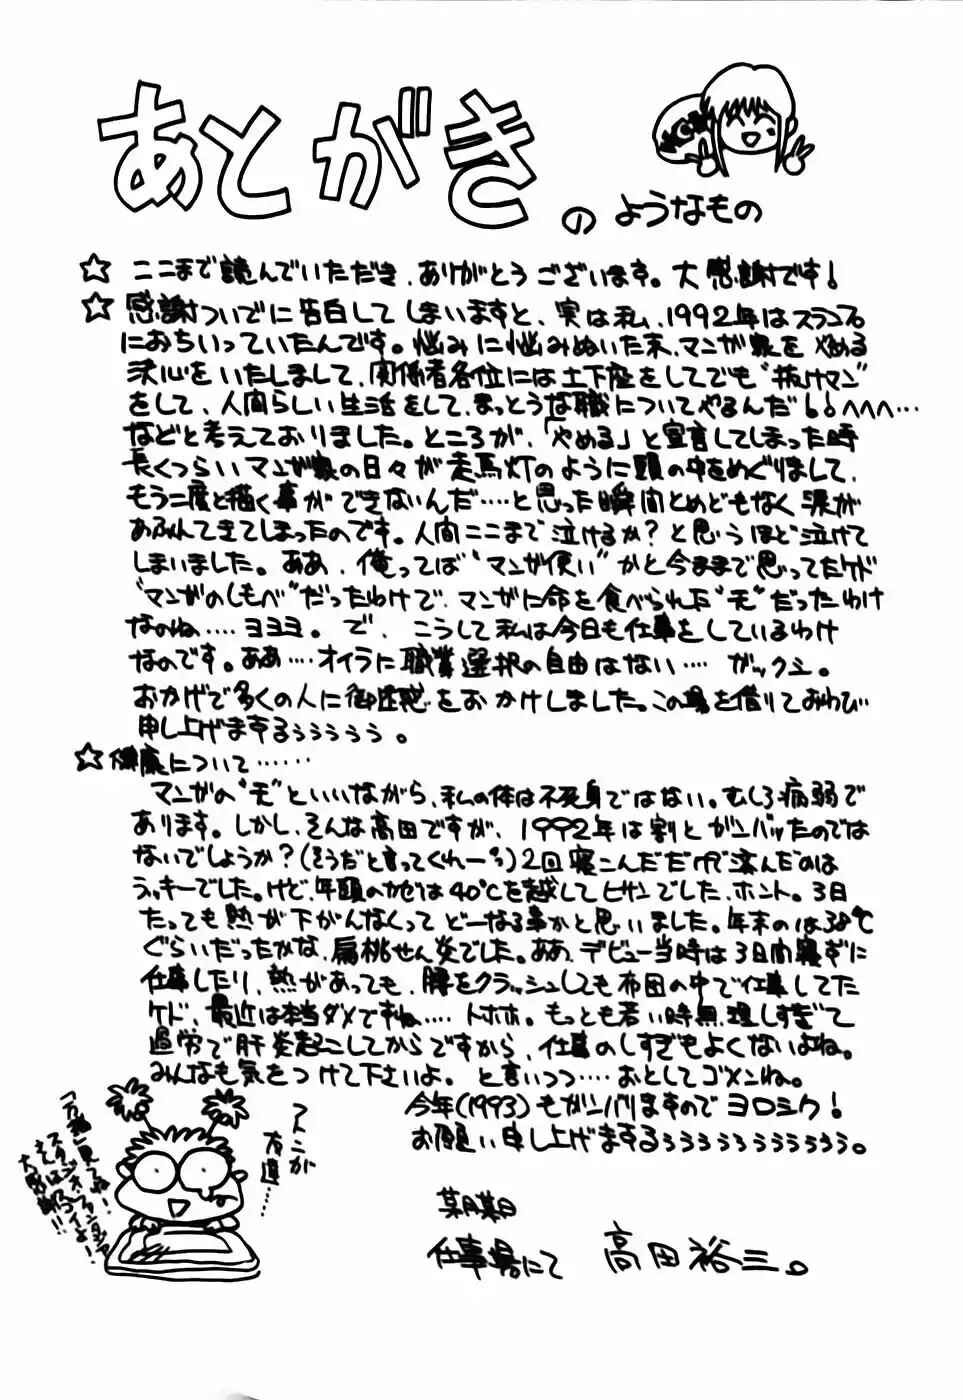 あとがき
のようなもの
☆ ここまで読んでいただき、ありがとうございます。大感謝です!
☆ 感謝ついでに告白してしまいますと、実は私、1992年はスランプ
におちいっていたんです。悩みに悩みぬいた末、マンガ家をやめる
決心をいたしまして、関係者各位には土下座をしてでも“抜けマン”
をして、人間らしい生活をして、まっとうな職についてやるんだ!!へへへ…
などと考えておりました。ところが、「やめる」と宣言してしまった時
長くつらいマンガ家の日々が走馬灯のように頭の中をめぐりまして、
もう二度と描く事ができないんだ‥‥と思った瞬間とめどもなく涙が
あふれてきてしまったのです。人間ここまで泣けるか?と思うほど泣けて
しまいました。ああ、俺ってば“マンガ使い”かと今まで思ってたケド
“マンガのしもべ”だったわけで、マンガに命を食べられた“无”だったわけ
なのね‥‥ヨヨヨ。で、こうして私は今日も仕事をしているわけ
なのです。ああ‥‥オイラに職業選択の自由はない‥‥ガックシ。
おかげで多くの人に御迷惑をおかけしました。この場を借りておわび
申し上げまするぅぅぅぅぅ。
☆ 健康について‥‥‥
マンガの“无”といいながら、私の体は不死身ではない。むしろ病弱で
あります。しかし、そんな高田ですが、1992年は割とガンバッたのでは
ないでしょうか?(そうだと言ってくれー)2回寝こんだだけで済んだのは
ラッキーでした。けど、年頭のカゼは40℃を越してヒサンでした、ホント。3日
たっても熱が下がんなくってどーなる事かと思いました。年末のは38℃
ぐらいだったかな、扁桃せん炎でした。ああ、デビュー当時は3日間寝ずに
仕事したり、熱があっても、腰をクラッシュしても布団の中で仕事してた
ケド、最近は本当ダメですね‥‥トホホ。もっとも若い時無理しすぎて
過労で肝炎起こしてからですから、仕事のしすぎもよくないよね。
みんなも気をつけて下さいよ。と言いつつ‥‥おとしてゴメンね。
今年(1993)もガンバりますのでヨロシク!
お願い申し上げまするぅぅぅぅぅぅぅぅぅぅ。
某月某日
仕事場にて 高田裕三。